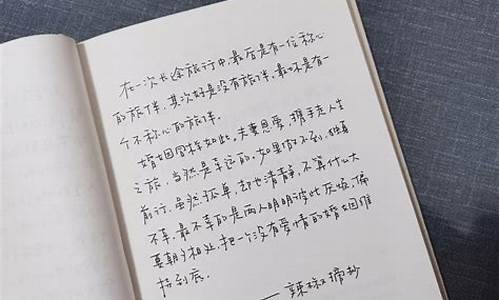 在一次长途旅行中,最好是有一位称心
的旅伴,其次好是没有旅伴,最坏是有一
个不称心的旅伴。
婚姻同样如此。夫妻恩爱,携手走人生
之旅,当然是幸运的。如果做不到,独自
前行,虽然孤单,却也清静,不算什么大
不幸。最不幸的是两人明明彼此厌烦,偏
要朝夕相处,把一个没有爱情的婚姻维
持到底。
—— 辣椒摘抄